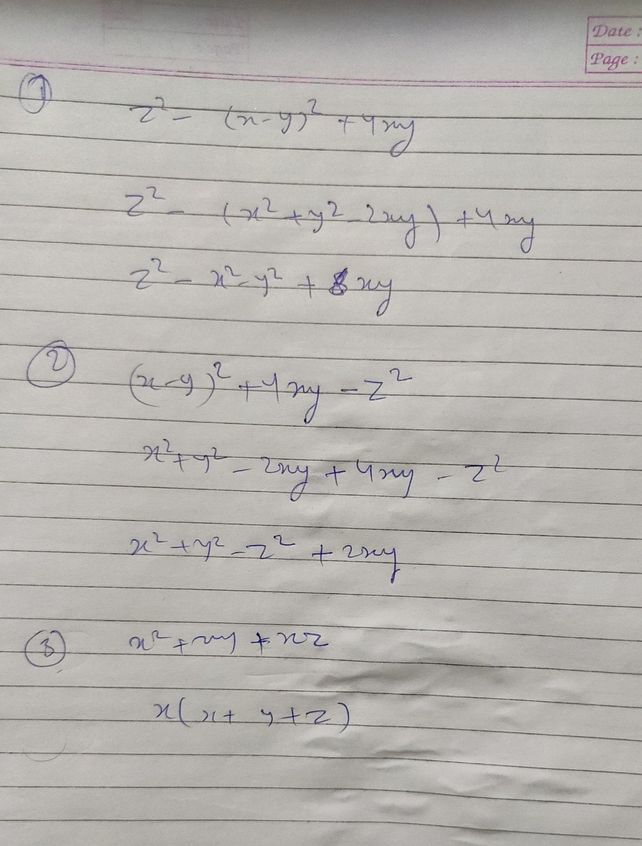 Date :
Page :
1
z² - (x-y)² + 4xy
z² - (x² + y² - 2xy) + 4xy
z² - x² - y² + 8xy
2
(x-y)² + 4xy - z²
x² + y² - 2xy + 4xy - z²
x² + y² - z² + 2xy
3
x² + xy + xz
x(x + y + z)